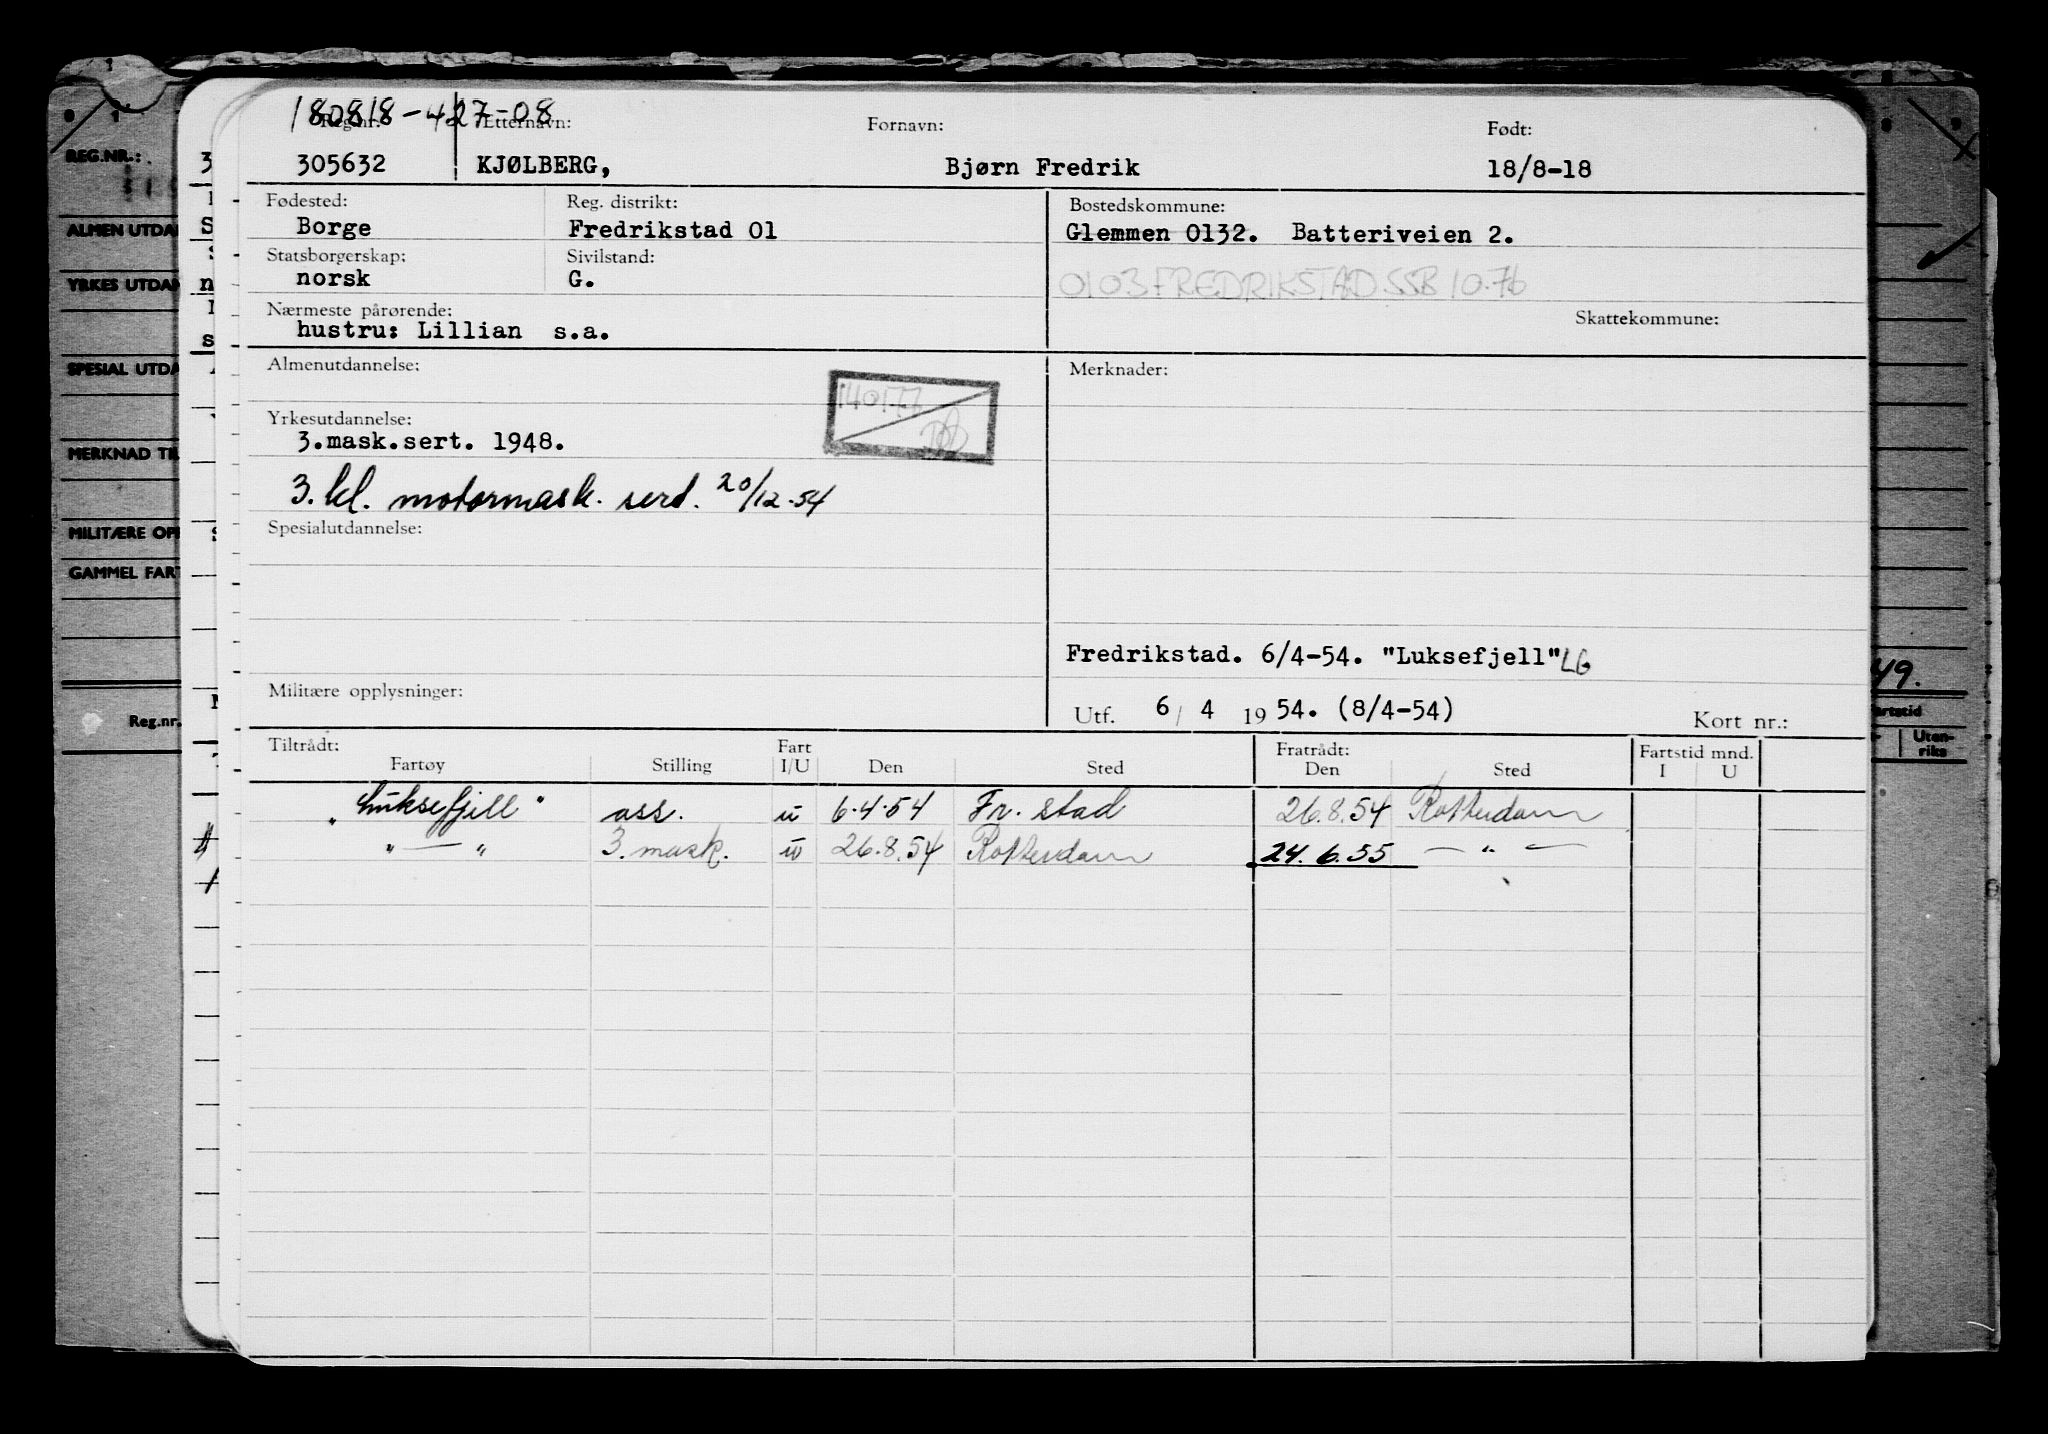 180818-427-08
Reg.nr. Etternavn: Fornavn: Født:
305632 KJØLBERG, Bjørn Fredrik 18/8-18
Fødested: Reg. distrikt: Bostedskommune:
Borge Fredrikstad 01 Glemmen 0132. Batteriveien 2.
Statsborgerskap: Sivilstand:
norsk G. 0103 FREDRIKSTAD SSB 10.76
Nærmeste pårørende: Skattekommune:
hustru: Lillian s.a.
Almenutdannelse: Merknader:
140177
DØD
Yrkesutdannelse:
3.mask.sert. 1948.
3. kl. motormask. sert. 20/12.54
Spesialutdannelse:
Fredrikstad. 6/4-54. "Luksefjell" LG
Militære opplysninger:
Utf. 6/4 1954. (8/4-54) Kort nr.:
Tiltrådt: Fart Fratrådt: Fartstid mnd.
Fartøy Stilling I/U Den Sted Den Sted I U
"Luksefjell" ass. u 6.4.54 Fr. stad 26.8.54 Rotterdam
" — " 3. mask. u 26.8.54 Rotterdam 24.6.55 — " —
REG.NR.:
ALMEN UTDA
YRKES UTDAN
SPESIAL UTDA
MERKNAD TIL
MILITÆRE OPP
GAMMEL FART
Reg.nr.
49.
artstid
Uten-
riks